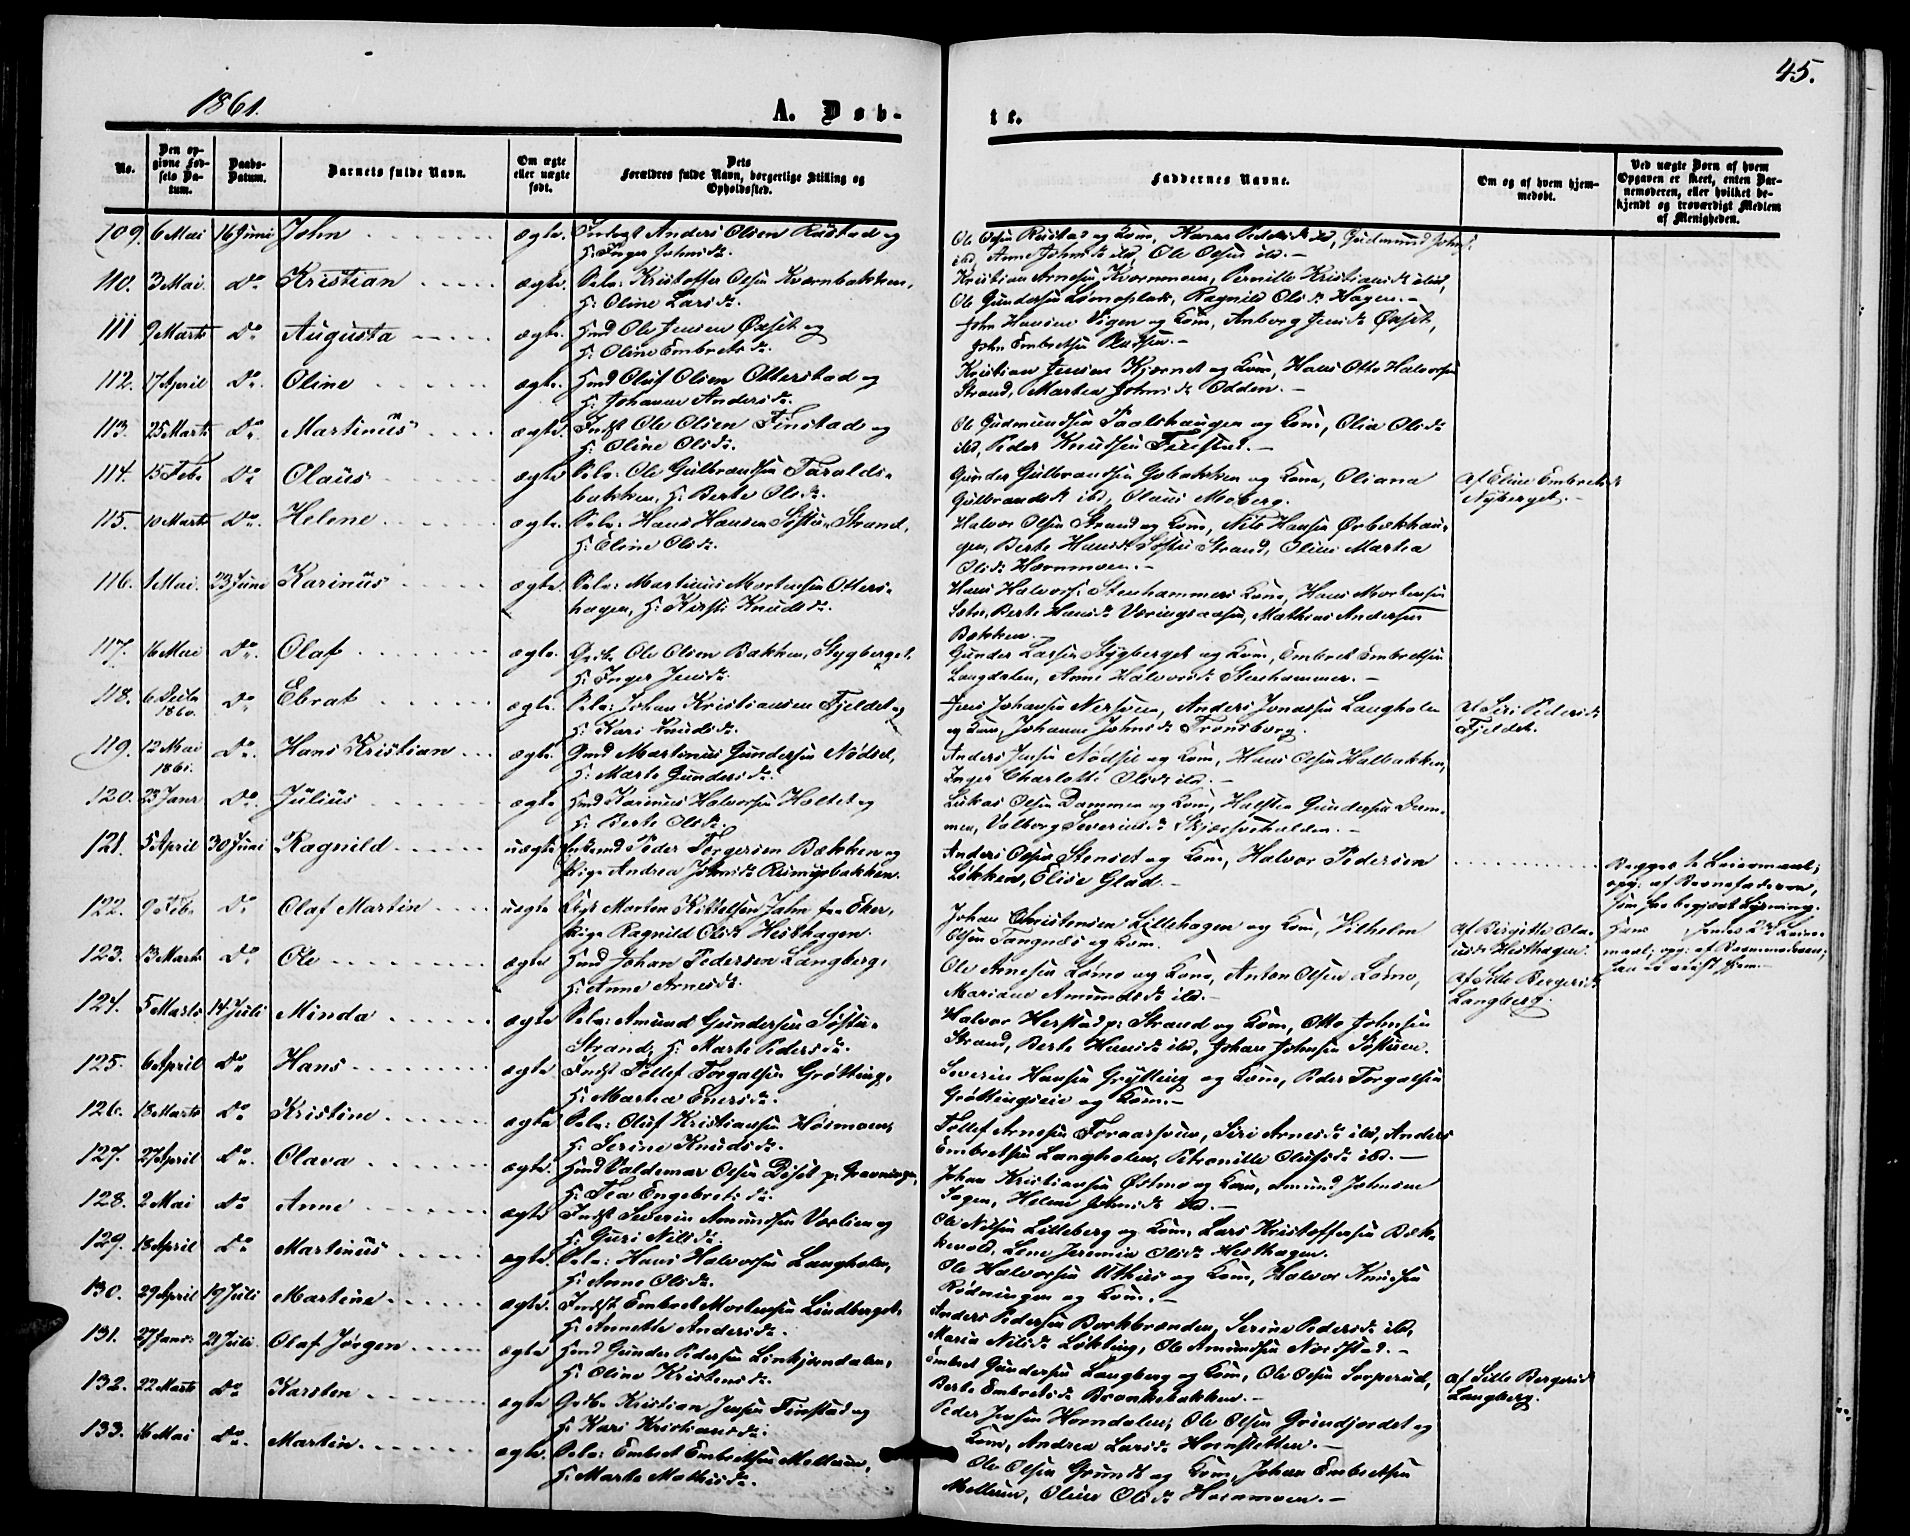 1861.
A. Døb-
te.
45.
No.
Den op-
givne Fød-
sels Da-
tum.
Daabs-
Datum.
Barnets fulde Navn.
Om ægte
eller uægte
født.
Dets
Forældres fulde Navn, borgerlige Stilling og
Opholdssted.
Faddernes Navne.
Om og af hvem hjem-
medøbt.
Ved uægte Børn af hvem
Opgaven er skeet, enten Bar-
nemoderen, eller hvilket be-
kjendt og troværdigt Medlem
af Menigheden.
109. 6 Mai 16 Juni John ægte. Anders Olsen Rustad og
H: Inger Johnsdr.
Ole Olsen Rustad og Kone, Karen Pedersdr ibd, Gudmund Johns:
ibd, Anne Johnsdr ibd, Ole Olsen ibd.
110. 3 Mai. Do Kristian ægte. Selv: Kristoffer Olsen Kværnbakken,
H: Oline Larsdr.
Kristian Arnesen Kværnmoen, Pernille Kristiansdr ibid,
Ole Gundersen Lømoplads, Ragnild Olsdr Hagen.
111 9 Marts Do. Augusta ægte. Gmd Ole Jensen Øxset og
H: Oline Embretsdr.
John Hansen Vigen og Kone, Anborg Jensdr Øxset,
John Embretsen Pladsen.
112. 17 April Do. Oline ægte. Gmd Oluf Olsen Otterstad og
H: Johanne Andersdr.
Kristian Jensen Kjernet og Kone, Hans Otto Halvorsen
Strand, Marthea Johnsdr Odden.
113. 25 Marts Do. Martinus ægte. Indst Ole Olsen Finstad og
H: Oline Olsdr.
Ole Gudmundsen Paalshaugen og Kone, Olia Olsdr
ibd, Peder Knudsen Finstad.
114. 15 Feb. Do Olaus ægte Selv: Ole Gulbrandsen Taralds-
bakken, H: Berte Olsdr.
Gunder Gulbrandsen Gobakken og Kone, Oliana
Gulbrandsdr ibd, Olaus Moberg.
Af Eline Embretsdr
Nyberget.
115. 10 Marts Do. Helene ægte. Selv: Hans Hansen Søstu-Strand,
H: Eline Olsdr.
Halvor Olsen Strand og Kone, Nils Hansen Ørbækhau-
gen, Berte Hansdr Søstu Strand, Oline Marthea
Olsdr Hornmoen.
116. 1 Mai. 23 Juni Karinus ægte. Selv: Martinus Mortensen Otters-
hagen, H: Kirsti Knudsdr.
Hans Halvors: Stenhammers Kone, Hans Mortensen
Berte Hansdr Væringsaasen, Mathias Andersen
Bakken.
117. 16 Mai Do. Olaf ægte. Ole Olsen Bakken, Stygberget.
H: Inger Jensdr.
Gunder Larsen Stygberget og Kone, Embret Embretsen
Langdalen, Anne Halvorsdr Stenhammer.
118. 6 Decbr
1860. Do Ebrat ægte. Selv: Johan Kristiansen Fjeldet og
H: Kari Knudsdr.
Jens Johansen Nersveen, Anders Jonassen Langholen
og Kone, Johanne Johnsdr Tronsberg.
Af Siri Pedersdr
Fjeldet.
119. 12 Mai
1861. Do. Hans Kristian ægte. Gmd Martinus Gundersen Nødset,
H: Marte Gundersdr.
Anders Jensen Nødset og Kone, Hans Olsen Halbakken,
Inger Charlotte Olsdr ibd.
120. 23 Janr Do. Julius ægte Gmd Karinus Halvorsen Holtet og
H: Berte Olsdr.
Lukas Olsen Dammen og Kone, Halsten Gundersen Dam-
men, Valborg Severinsdr Skjærsveholden.
121. 5 April 30 Juni Ragnild uægte Peder Torgersen Bakken og
Pige Andrea Johnsdr Rismyrbakken.
Anders Olsen Stenset og Kone, Halvor Pedersen
Løkken, Elise Glad.
Begges 1ste Leiermaal;
opg: af Barnefaderen,
som har begjært Lysning.
122. 9 Feb. Do Olaf Martin uægte Morten Kittelsen Jahn fra Eker,
Pige Ragnild Olsdr Hesthagen.
Johan Christensen Lillehagen og Kone, Vilhelm
Olsen Tangnæs og Kone.
Af Birgitte Ola-
usdr Hesthagen.
Hans, hendes 2det Leier-
maal, opg: af Barnemoderen;
123. 13 Marts Do. Ole ægte Gmd Johan Pedersen Langberg,
H: Anne Arnesdr.
Ole Arnesen Lømo og Kone, Anton Olsen Lømo,
Mariane Amundsdr ibd.
Af Sille Bergersdr
Langberg.
124. 5 Marts 14 Juli Minda ægte Selv: Amund Gundersen Søstu-
Strand, H: Marte Pedersdr.
Halvor Herstad p: Strand og Kone, Otto Johnsen
Strand, Berte Hansdr ibd, Johan Johnsen Søstuen.
125. 6 April Do Hans ægte. Indst Tollef Torgalsen Grøtting,
H: Marthea Enersdr.
Severin Hansen Grøtting og Kone, Peder Torgalsen
Grøttingseie og Kone.
126. 18 Marts Do. Kristine ægte Selv: Oluf Kristiansen Hoismoen,
H: Serine Knudsdr.
Tollef Arnesen Foraarsveen, Siri Arnesdr ibd, Anders
Embretsen Langholen, Petronille Olufsdr ibd.
127. 27 April Do. Olava ægte. Gmd Valdemar Olsen Diset p: Gravningen,
H: Thea Engebretsdr.
Johan Kristiansen Østmo og Kone, Amund Johnsen
Sagen, Helene Johnsdr ibd.
128. 2 Mai Do Anne ægte Indst Severin Amundsen Vorlien og
H: Guri Nilsdr.
Ole Nilsen Lilleberg og Kone, Lars Kristoffersen Bæk-
kevold, Lene Jeremia Olsdr Hesthagen.
129. 18 April Do. Martinus ægte. Selv: Hans Halvorsen Langholen,
H: Anne Olsdr.
Ole Halvorsen Uthus og Kone, Halvor Knudsen
Rødningen og Kone.
130. 29 April 19 Juli Martine ægte. Indst Embret Mortensen Lindberget,
H: Annette Andersdr.
Anders Pedersen Borkbranden, Serine Pedersdr ibd,
Maria Nilsdr Løkting, Ole Amundsen Nordstad.
131. 27 Janr: 21 Juli. Olaf Jørgen ægte Gmd Gunder Pedersen Linkjøndalen,
H: Oline Kristensdr.
Embret Gundersen Langberg og Kone, Ole Olsen Sorperud,
Berte Embretsdr Braakebakken.
Af Sille Bergersdr
Langberg.
132. 22 Marts Do Karsten ægte Kristian Jensen Finstad og
H: Kari Kristiansdr.
Peder Jensen Horndalen, Ole Olsen Grindfjordet og
Kone, Andrea Larsdr Hornsletten.
133. 16 Mai Do. Martin. ægte. Selv: Embret Embretsen Mellum,
H: Marte Mathisdr.
Ole Olsen Grundt og Kone, Johan Embretsen
Mellum, Oline Olsdr Hornmoen.